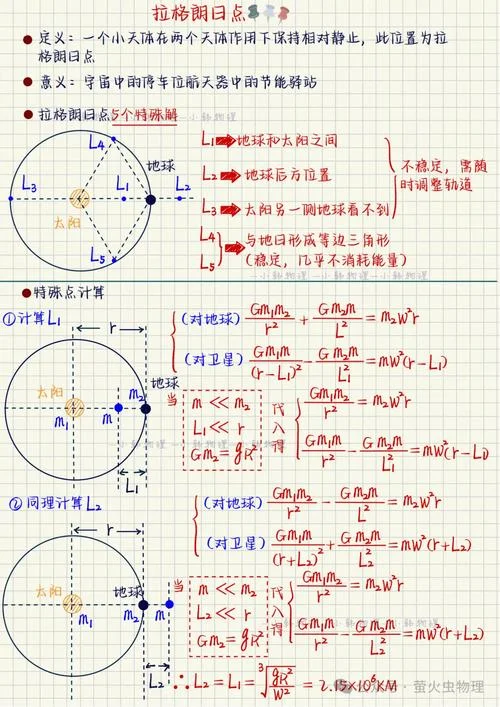 拉格朗日点
定义：一个小天体在两个天体作用下保持相对静止，此位置为拉
格朗日点
意义：宇宙中的停车位航天器中的节能驿站
拉格朗日点5个特殊解
L₁ ➡ 地球和太阳之间
L₂ ➡ 地球后方位置
L₃ ➡ 太阳另一侧地球看不到
不稳定，需随
时调整轨道
L₄
L₅
➡ 与地日形成等边三角形
(稳定，几乎不消耗能量)
L₄
地球
L₃
L₁
L₂
太阳
L₅
一小新物理
特殊点计算
①计算L₁
r
太阳
地球
m₁
m
m₂
L₁
(对地球) Gm₁m₂/r² + Gm₂m/L² = m₂W²r
(对卫星) Gm₁m/(r-L₁)² - Gm₂m/L₁² = mW²(r-L₁)
当
m << m₂
L₁ << r
Gm₂ = gR²
代入得
Gm₁m₂/r² = m₂W²r
Gm₁m/r² - Gm₂m/L₁² = mW²(r-L₁)
②同理计算L₂
r
太阳
地球
m₁
m₂
m
L₂
(对地球) Gm₁m₂/r² - Gm₂m/L² = m₂W²r
(对卫星) Gm₁m/(r+L₂)² + Gm₂m/L₂² = mW²(r+L₂)
当
m << m₂
L₂ << r
Gm₂ = gR²
代入得
Gm₁m₂/r² = m₂W²r
Gm₁m/r² - Gm₂m/L₂² = mW²(r+L₂)
∴ L₂ = L₁ = ³√(gR²/W²) = ×10⁶KM
萤火虫物理